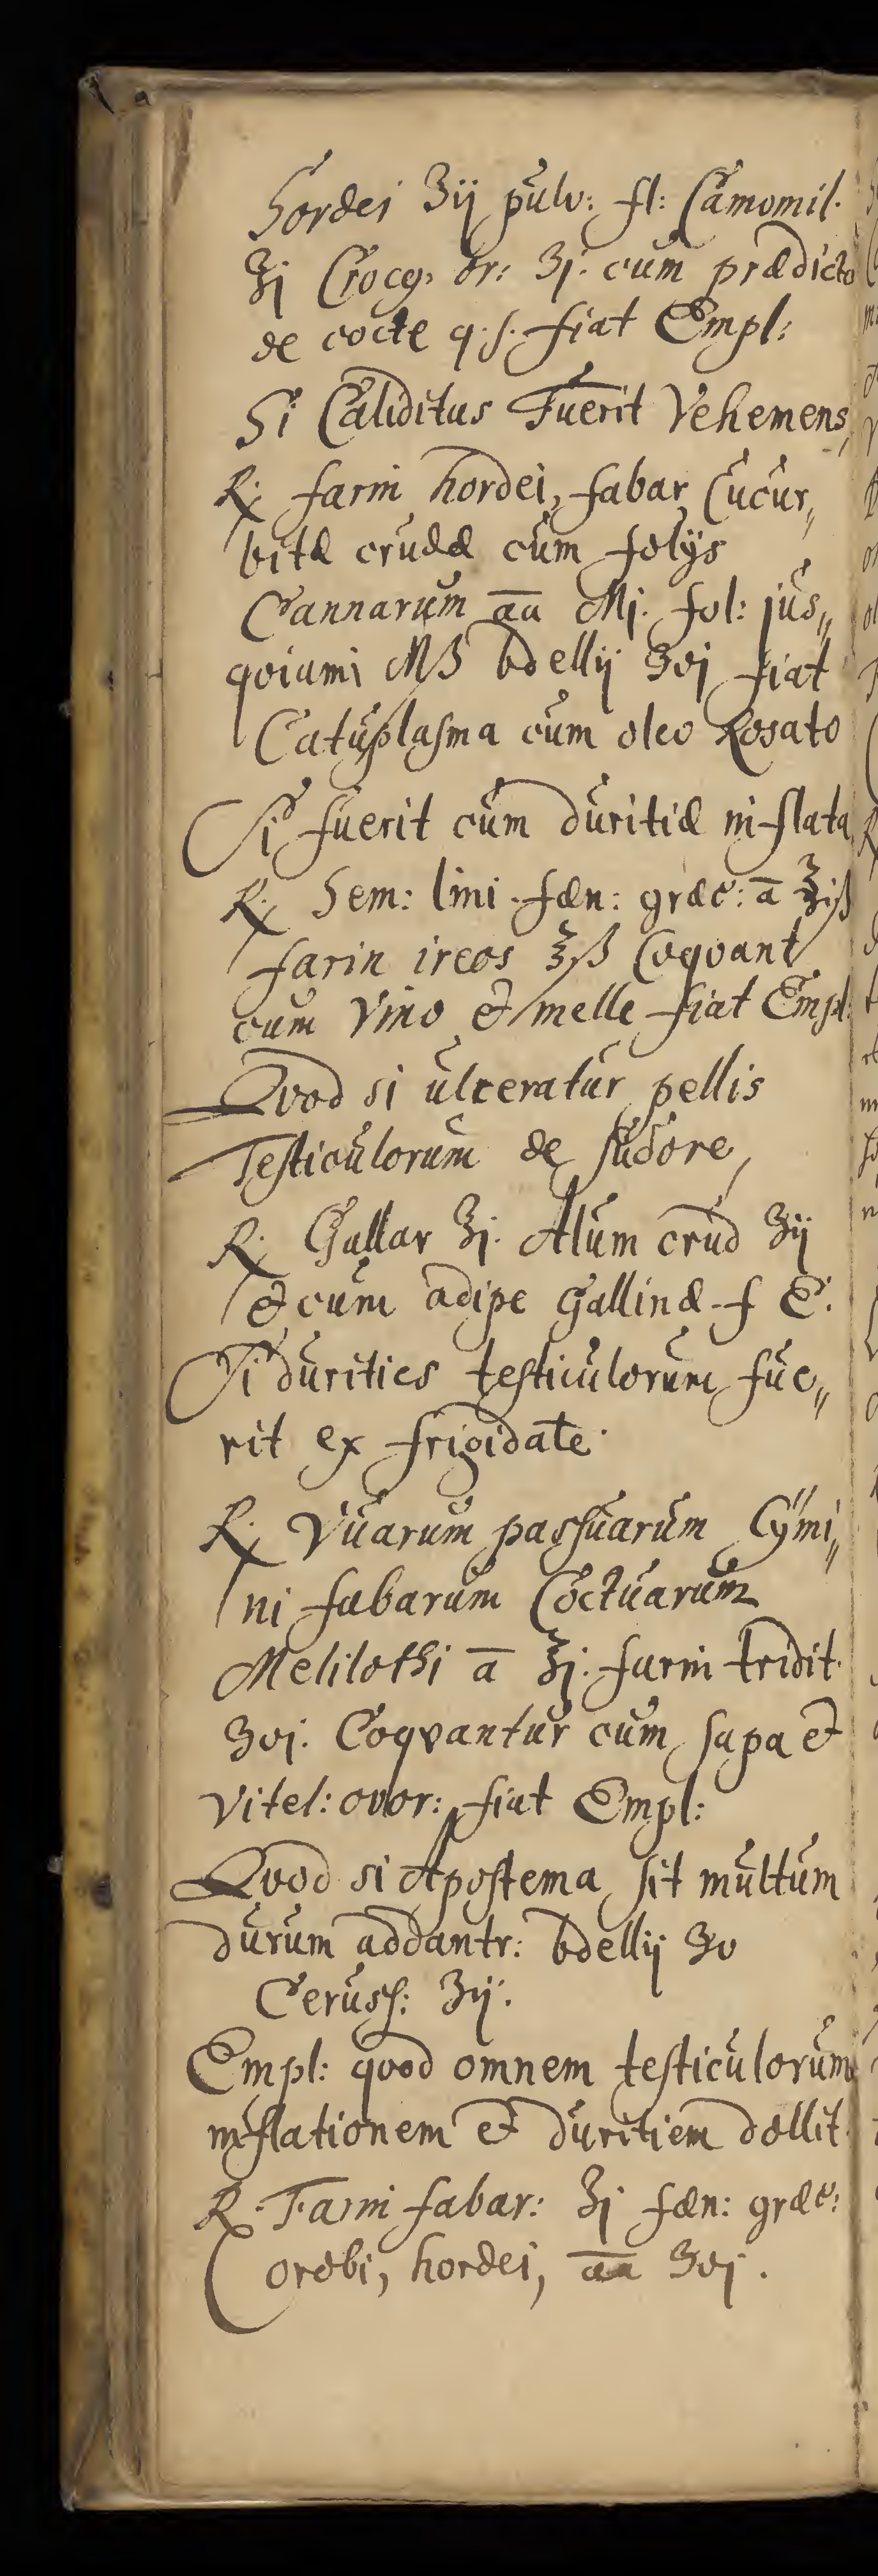 Hordei ʒij pulv: fl: Camomil.
ʒj Crocq; or: ʒj. cum prædicto
de cocte q. s. fiat Empl:
Si Caliditas Fuerit Vehemens,
℞; farin hordei, fabar, Cucur„
bitæ crudæ cum folijs
Cannarum aa Mj. fol: jus„
qviami Mß bdellij ʒvj fiat
Cataplasma cum oleo Rosato
Si fuerit cum duritiæ inflata,
℞; Sem: lini. fæn: græc: a ℥iß
farin ireos ℥ß Coqvant
cum Vino & melle fiat Empl:
Qvod si ulceratur pellis
Testiculorum de sudore,
℞; Gallar ʒj. Alum crud ʒij
& cum adipe Gallinæ f E.
Si durities testiculorum fue„
rit ex frigidate.
℞; Vuarum passuarum Cÿmi„
ni fabarum Coctuarum
Melilothi a ℥j. farin tridit.
ʒvj. Coqvantur cum sapa et
Vitel: ovor: fiat Empl:
Qvod si Apostema sit multum
durum addantr: bdellij ʒv
Ceruss: ʒij.
Empl: qvod omnem testiculorum
inflationem et duritiem dollit.
℞. Farin fabar: ʒj fæn: græc:
orobi, hordei, aa ʒvj.